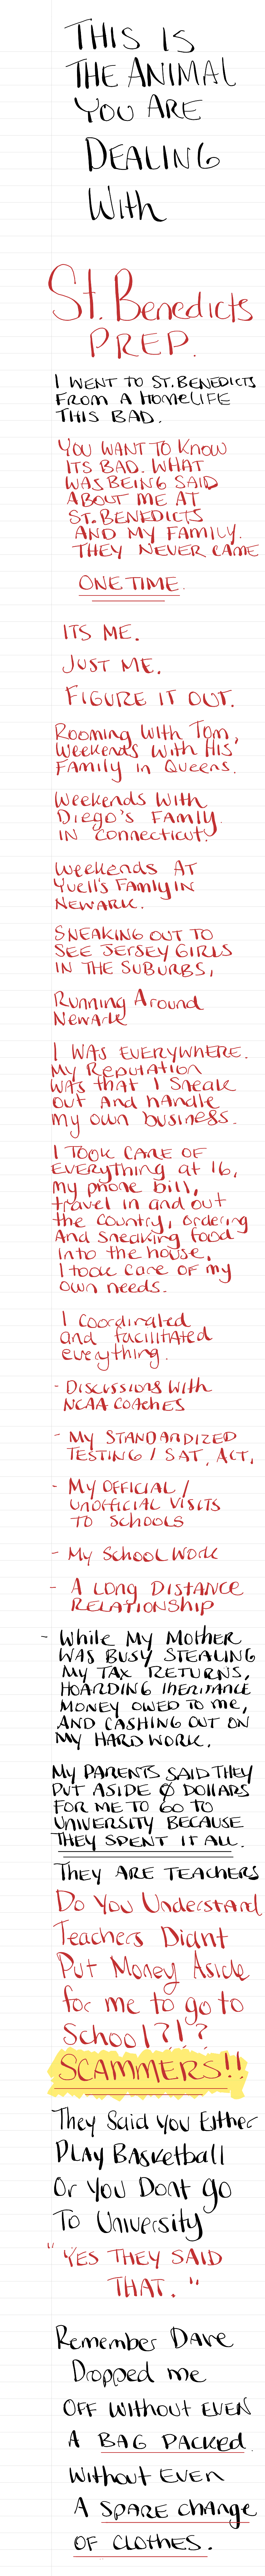 THIS IS
THE ANIMAL
YOU ARE
DEALING
With
St. Benedicts
PREP.
I WENT TO ST. BENEDICTS
FROM A HOMELIFE
THIS BAD.
YOU WANT TO KNOW
ITS BAD. WHAT
WAS BEING SAID
ABOUT ME AT
ST. BENEDICTS
AND MY FAMILY.
THEY NEVER CAME
ONE TIME.
ITS ME.
JUST ME.
FIGURE IT OUT.
Rooming With Tom,
Weekends With His
Family in Queens.
Weekends With
Diego's Family.
IN Connecticut.
Weekends AT
Yuell's Family IN
NEWARK.
SNEAKING OUT TO
SEE JERSEY GIRLS
IN THE SUBURBS,
Running Around
Newark
I WAS EVERYWHERE.
My Reputation
WAS that I Sneak
out And handle
my own business.
I TOOK CARE OF
EVERYthing at 16,
my phone bill,
travel in and out
the country, ordering
And Sneaking food
into the house.
I took care of my
own needs.
I coordinated
and facilitated
everything.
- Discussions With
NCAA COACHES
- MY STANDARDIZED
TESTING / SAT, ACT,
- MY OFFICIAL /
UNOFFICIAL VISITS
TO SCHOOLS
- My School Work
- A LONG DISTANCE
RELATIONSHIP
- While My Mother
WAS BUSY STEALING
MY TAX RETURNS,
HOARDING INHERITANCE
MONEY OWED TO me,
AND CASHING OUT ON
MY HARD WORK.
MY PARENTS SAID THEY
PUT ASIDE 0 DOLLARS
FOR ME TO GO TO
UNIVERSITY BECAUSE
THEY SPENT IT ALL.
THEY ARE TEACHERS
Do You Understand
Teachers Didnt
Put Money Aside
for me to go to
School?!?
SCAMMERS!!
They Said You Either
PLAY BASKetball
Or You Dont go
To University
"YES THEY SAID
THAT."
Remember Dave
Dropped me
OFF Without EVEN
A BAG PACKED.
Without EVEN
A SPARE change
OF CLOTHES.